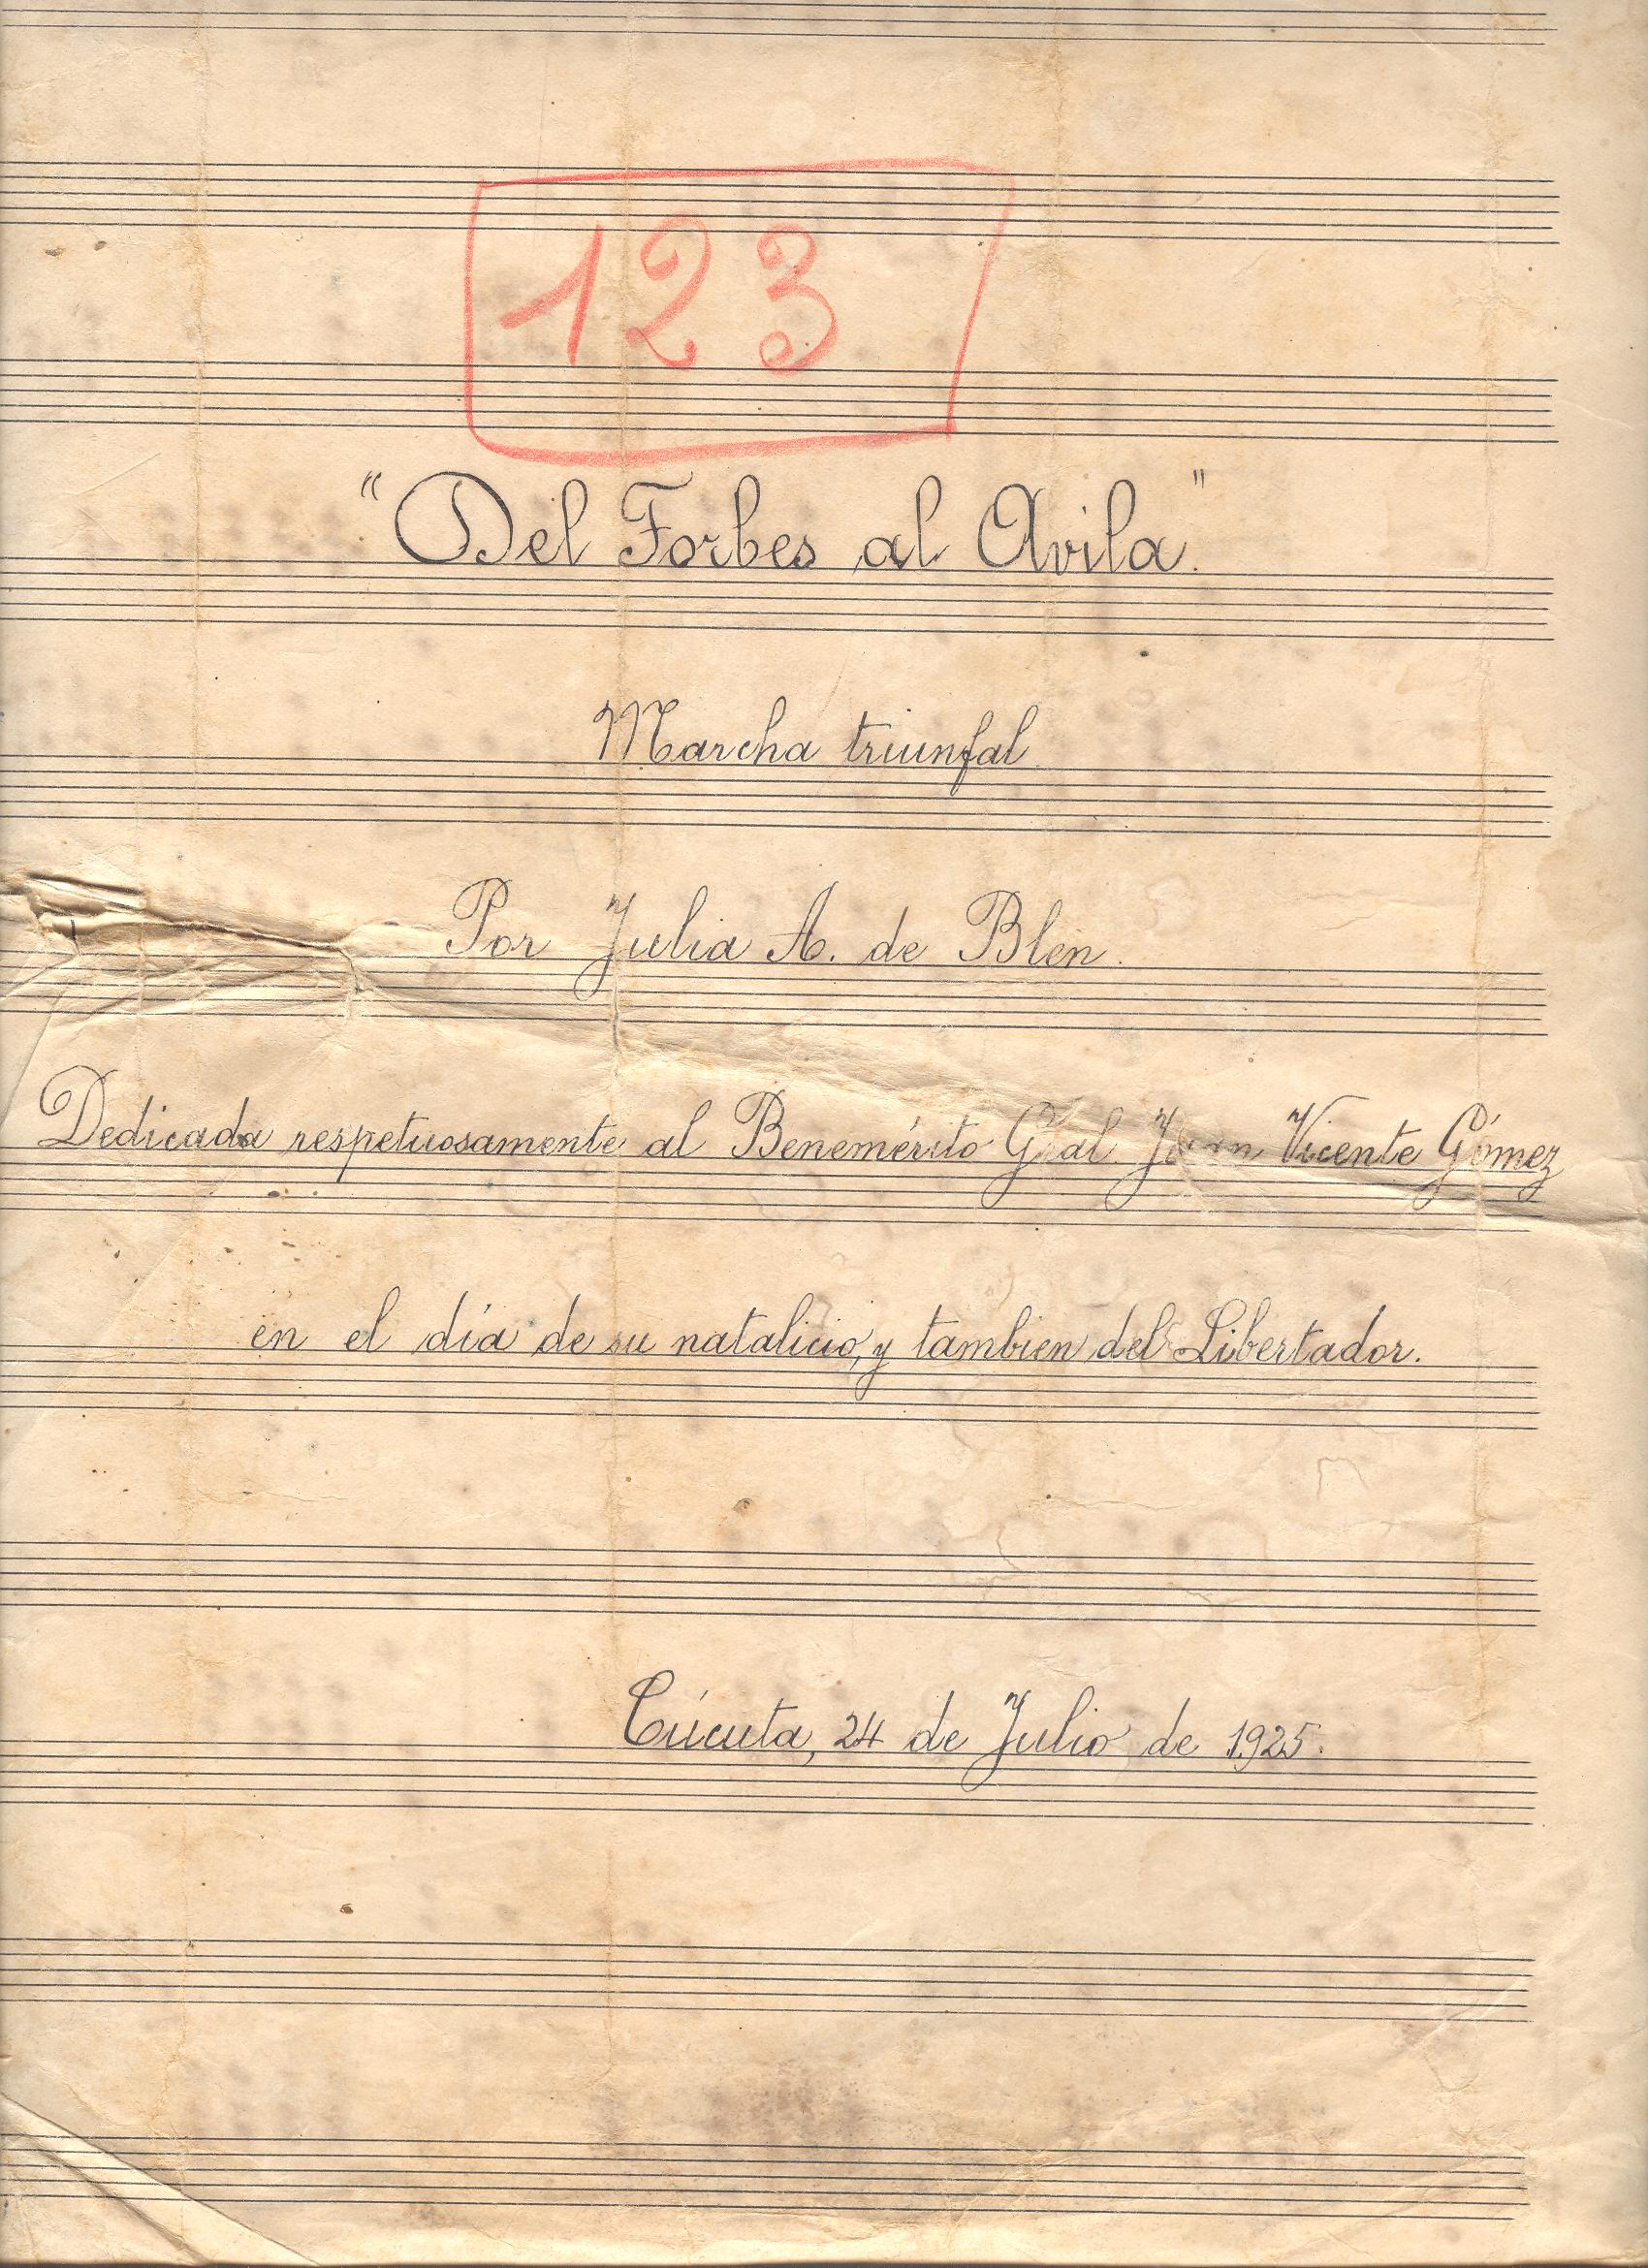 123
"Del Forbes al Avila."
Marcha triunfal
Por Julia A. de Blen.
Dedicada respetuosamente al Benemérito Gral. Juan Vicente Gómez
en el día de su natalicio, y tambien del Libertador.
Cúcuta, 24 de Julio de 1925.